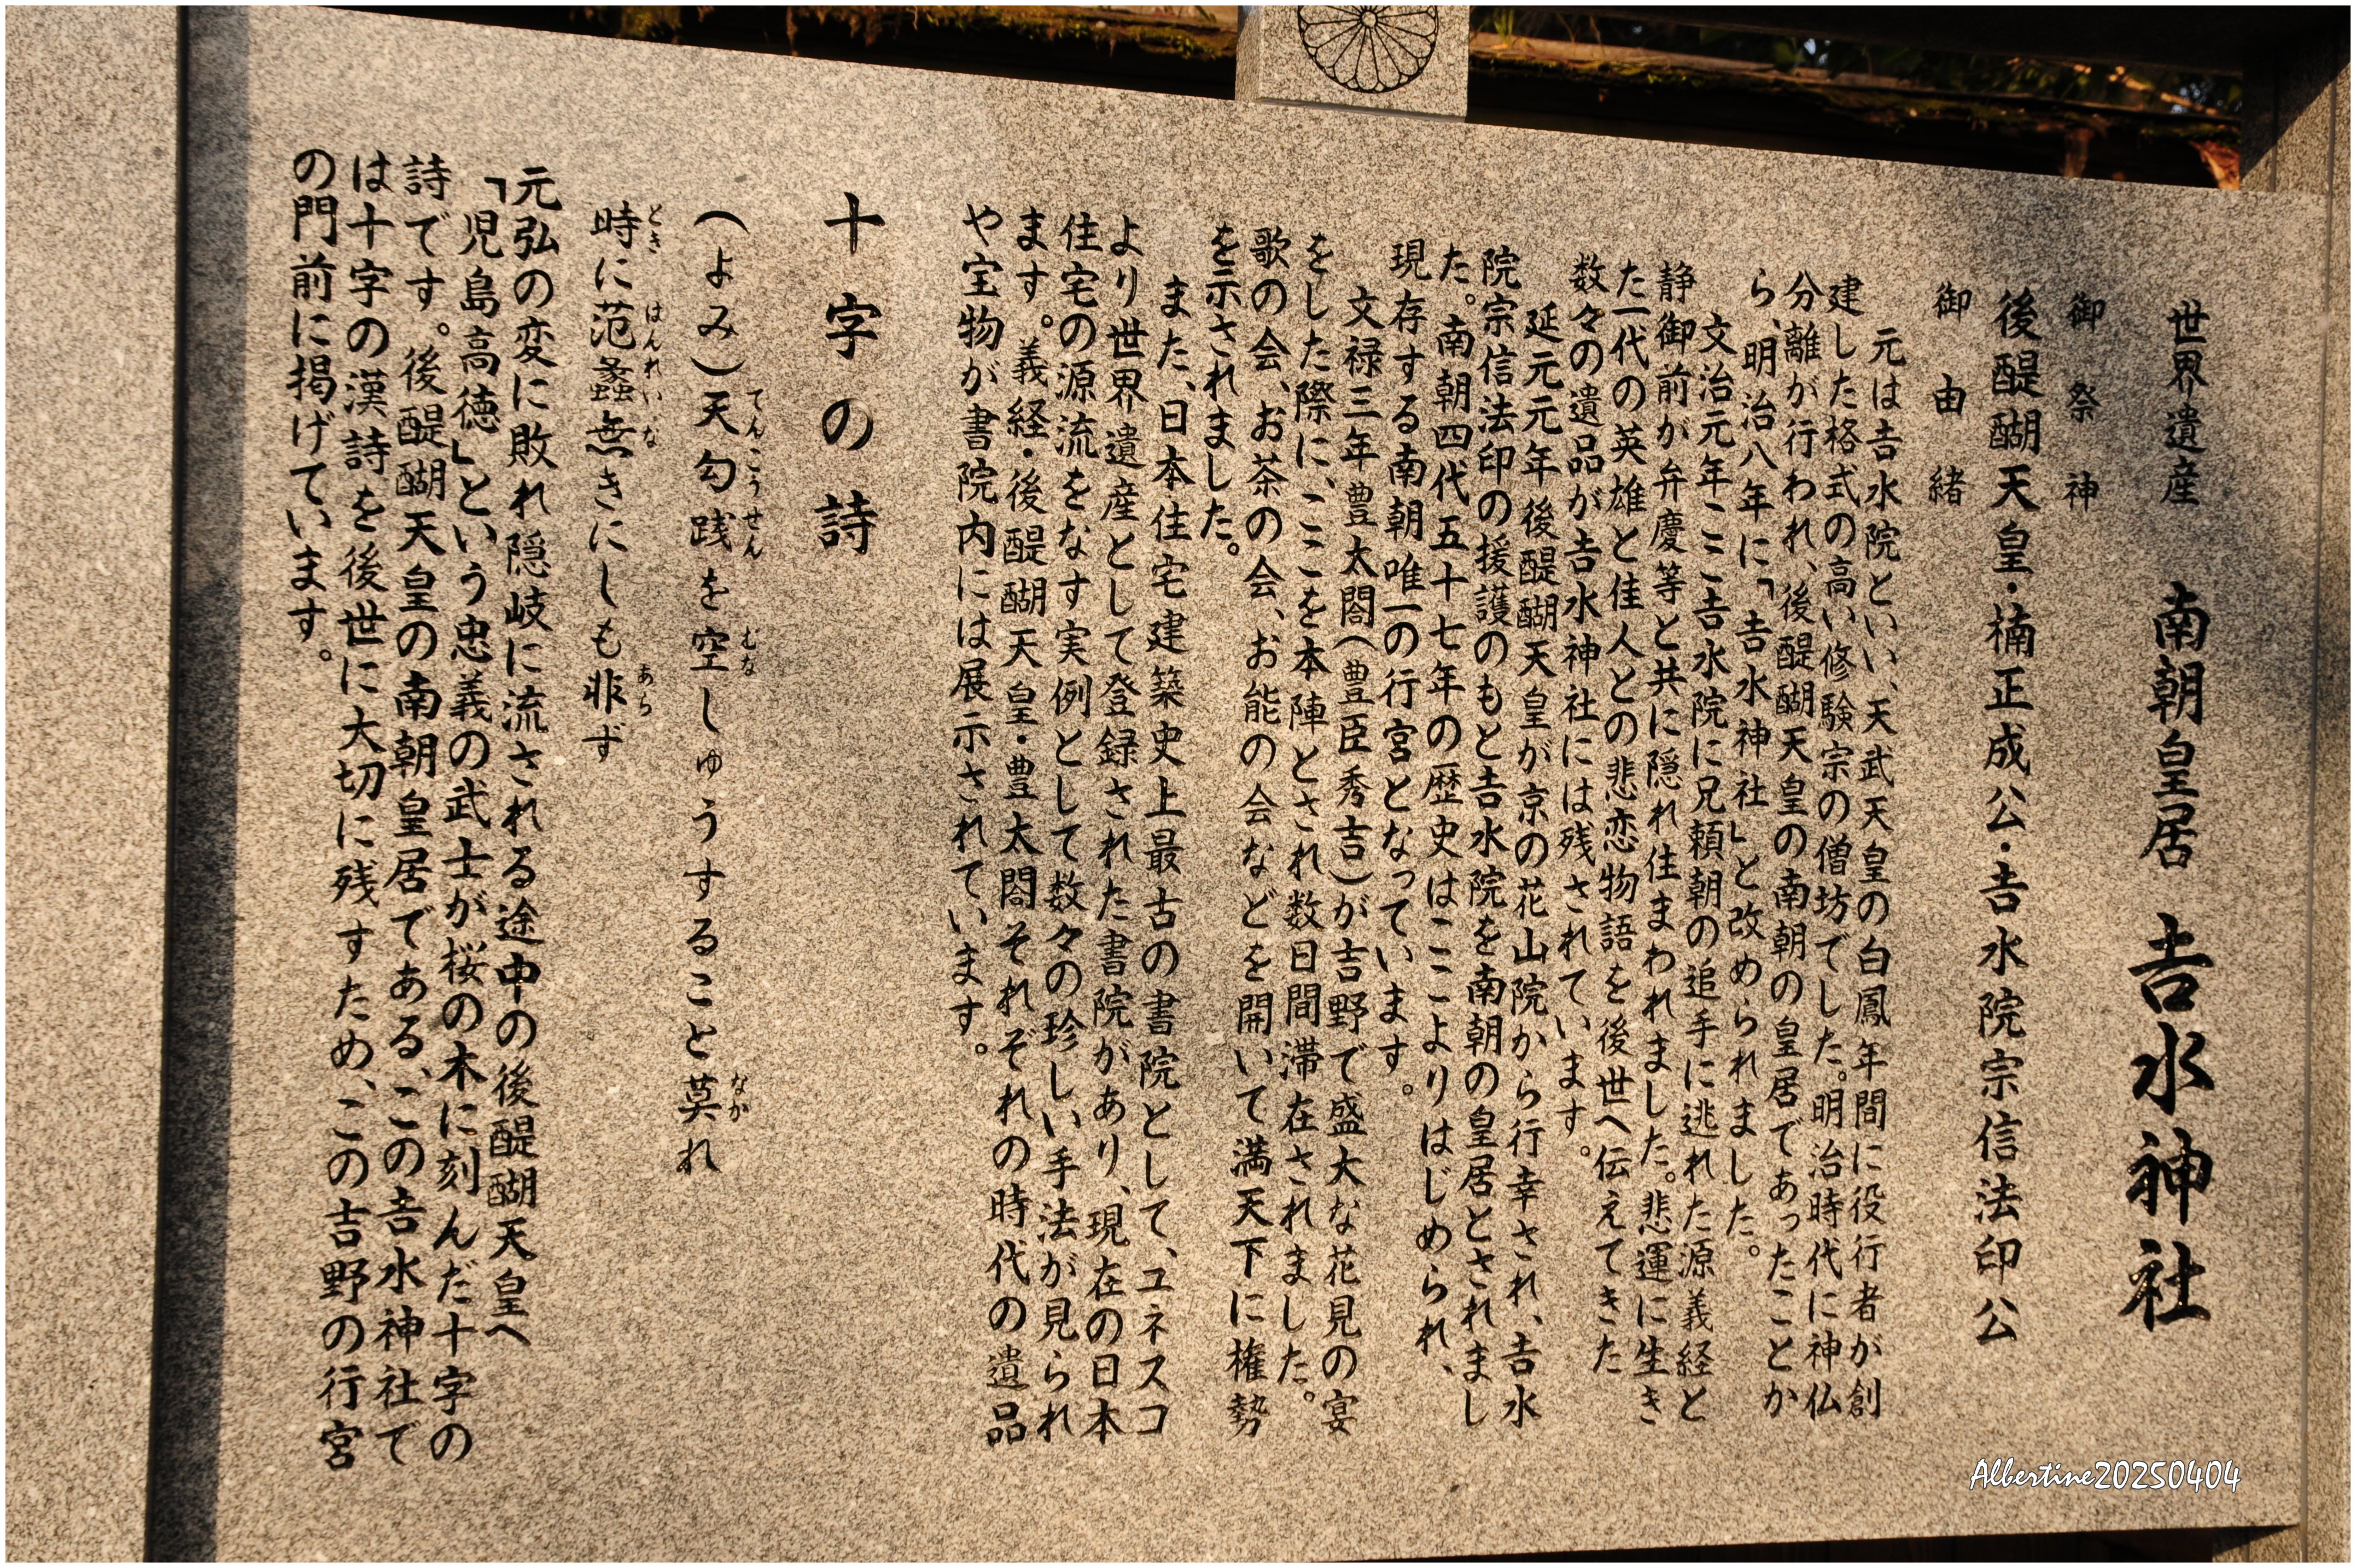 世界遺産 南朝皇居 𠮷水神社
御祭神
後醍醐天皇・楠正成公・𠮷水院宗信法印公
御由緒
元は𠮷水院といい、天武天皇の白鳳年間に役行者が創
建した格式の高い修験宗の僧坊でした。明治時代に神仏
分離が行われ、後醍醐天皇の南朝の皇居であったことか
ら、明治八年に「𠮷水神社」と改められました。
文治元年ここ𠮷水院に兄頼朝の追手に逃れた源義経と
静御前が弁慶等と共に隠れ住まわれました。悲運に生き
た一代の英雄と佳人との悲恋物語を後世へ伝えてきた
数々の遺品が𠮷水神社には残されています。
延元元年後醍醐天皇が京の花山院から行幸され、𠮷水
院宗信法印の援護のもと𠮷水院を南朝の皇居とされまし
た。南朝四代五十七年の歴史はここよりはじめられ、
現存する南朝唯一の行宮となっています。
文禄三年豊太閤(豊臣秀吉)が吉野で盛大な花見の宴
をした際に、ここを本陣とされ数日間滞在されました。
歌の会、お茶の会、お能の会などを開いて満天下に権勢
を示されました。
また、日本住宅建築史上最古の書院として、ユネスコ
より世界遺産として登録された書院があり、現在の日本
住宅の源流をなす実例として数々の珍しい手法が見られ
ます。義経・後醍醐天皇・豊太閤それぞれの時代の遺品
や宝物が書院内には展示されています。
十字の詩
(よみ)天勾践を空しゅうすること莫れ
てんこうせん むな なか
時に范蠡無きにしも非ず
とき はんれいな あら
元弘の変に敗れ隠岐に流される途中の後醍醐天皇へ
「児島高徳」という忠義の武士が桜の木に刻んだ十字の
詩です。後醍醐天皇の南朝皇居である、この𠮷水神社で
は十字の漢詩を後世に大切に残すため、この吉野の行宮
の門前に掲げています。
Albertine20250404